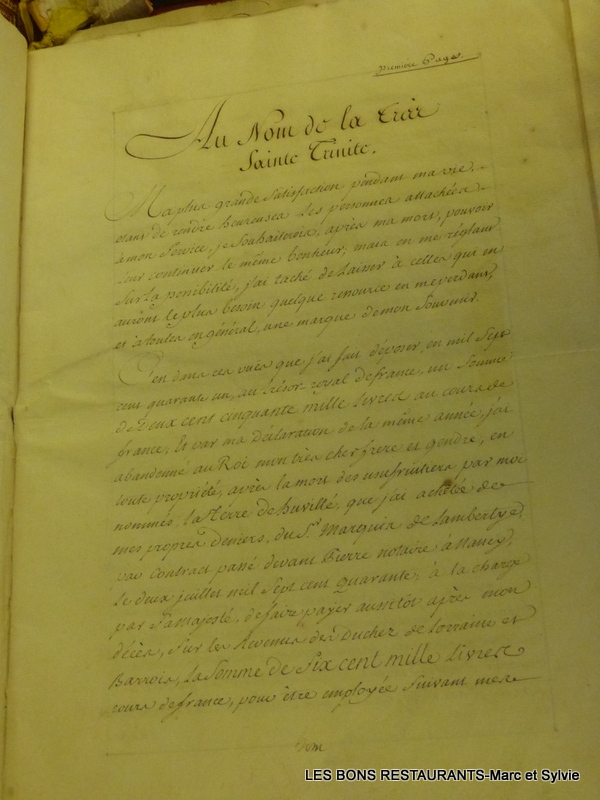 Première Page.
Au Nom de la Très
Sainte Trinité.
Ma plus grande Satisfaction pendant ma vie,
etant de rendre heureuses les personnes attachées
à mon Service, je Souhaiterois, après ma mort, pouvoir
leur continuer le même bonheur; mais en me réglant
Sur La possibilité, j'ai taché de Laisser à celles qui en
auront le plus besoin quelque ressource en me perdant,
et à toutes en général, une marque de mon Souvenir.
C'en dans ces vües que j'ai fait déposer, en mil Sept
cent quarante un, au trésor royal de france, un Somme
de Deux cent cinquante mille livres au cours de
france, Et par ma déclaration de la même année, j'ai
abandonné au Roi mon très cher frere et gendre, en
toute propriété, après la mort des usufruitiers par moi
nommés, la Terre de huvillé, que j'ai achetée de
mes propres deniers, du S.r Marquis de Lambertye,
par Contract passé devant Pierre notaire à Nancy,
Le deux juillet mil Sept cent quarante, à la charge
par Sa majesté, de faire payer aussitôt après mon
décès, Sur les Revenus des Duchez de Lorraine et
Barrois, La Somme de Six cent mille Livres
cours de france, pour être employée Suivant mes
LES BONS RESTAURANTS-Marc et Sylvie